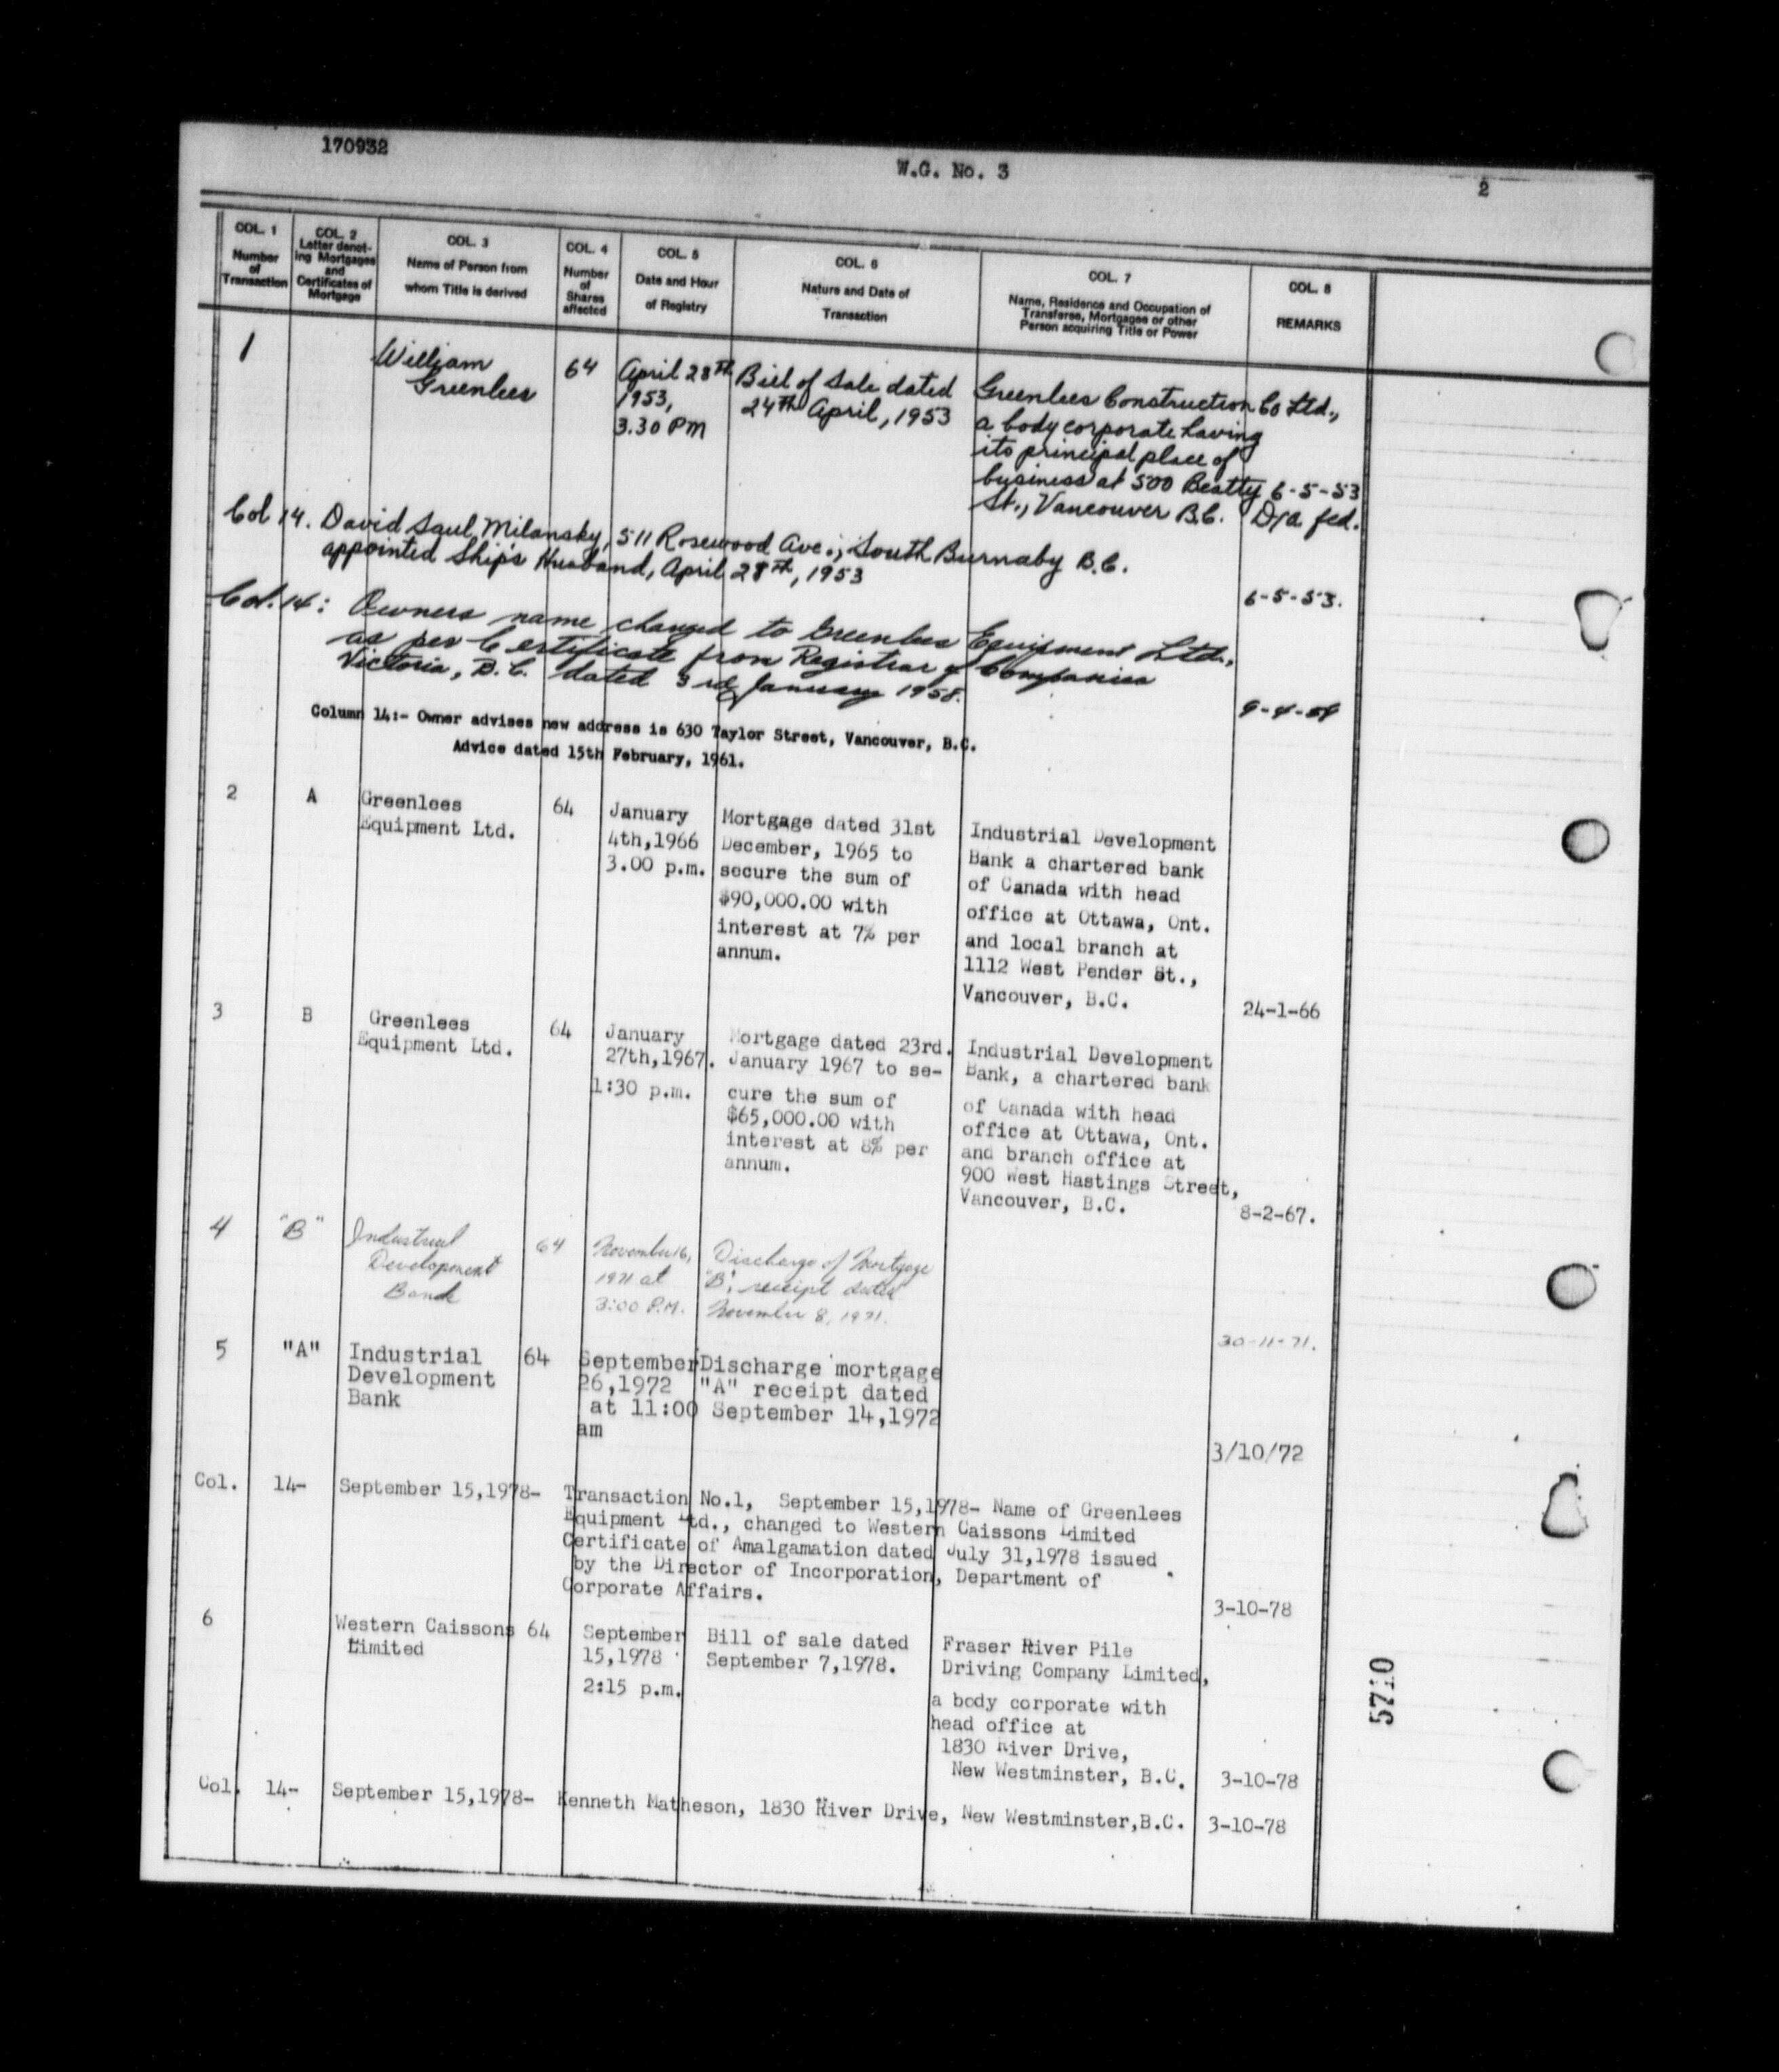 170932
W.G. No. 3
2
COL. 1
Number
of
Transaction
COL. 2
Letter denot-
ing Mortgages
and
Certificates of
Mortgage
COL. 3
Name of Person from
whom Title is derived
COL. 4
Number
of
Shares
affected
COL. 5
Date and Hour
of Registry
COL. 6
Nature and Date of
Transaction
COL. 7
Name, Residence and Occupation of
Transferee, Mortgagee or other
Person acquiring Title or Power
COL. 8
REMARKS
1
William
Greenlees
64
April 28th
1953,
3.30 PM
Bill of Sale dated
24th April, 1953
Greenlees Construction Co Ltd.,
a body corporate having
its principal place of
business at 500 Beatty
St., Vancouver B.C.
6-5-53
D/a fed.
Col 14. David Saul Milansky, 511 Rosewood Ave., South Burnaby B.C.
appointed Ship's Husband, April 28th, 1953
6-5-53.
Col. 14: Owners name changed to Greenlees Equipment Ltd.,
as per Certificate from Registrar of Companies
Victoria, B.C. dated 3rd January 1958.
Column 14:- Owner advises new address is 630 Taylor Street, Vancouver, B.C.
Advice dated 15th February, 1961.
2
A
Greenlees
Equipment Ltd.
64
January
4th,1966
3.00 p.m.
Mortgage dated 31st
December, 1965 to
secure the sum of
$90,000.00 with
interest at 7% per
annum.
Industrial Development
Bank a chartered bank
of Canada with head
office at Ottawa, Ont.
and local branch at
1112 West Pender St.,
Vancouver, B.C.
24-1-66
3
B
Greenlees
Equipment Ltd.
64
January
27th,1967.
1:30 p.m.
Mortgage dated 23rd.
January 1967 to se-
cure the sum of
$65,000.00 with
interest at 8% per
annum.
Industrial Development
Bank, a chartered bank
of Canada with head
office at Ottawa, Ont.
and branch office at
900 West Hastings Street,
Vancouver, B.C.
8-2-67.
4
"B"
Industrial
Development
Bank
64
November 16,
1971 at
3:00 P.M.
Discharge of Mortgage
"B", receipt dated
November 8, 1971.
30-11-71.
5
"A"
Industrial
Development
Bank
64
September
26,1972
at 11:00
am
Discharge mortgage
"A" receipt dated
September 14,1972
3/10/72
Col. 14- September 15,1978- Transaction No.1, September 15,1978- Name of Greenlees
Equipment Ltd., changed to Western Caissons Limited
Certificate of Amalgamation dated July 31,1978 issued
by the Director of Incorporation, Department of
Corporate Affairs.
3-10-78
6
Western Caissons
Limited
64
September
15,1978
2:15 p.m.
Bill of sale dated
September 7,1978.
Fraser River Pile
Driving Company Limited,
a body corporate with
head office at
1830 River Drive,
New Westminster, B.C.
3-10-78
Col. 14- September 15,1978- Kenneth Matheson, 1830 River Drive, New Westminster,B.C.
3-10-78
5710